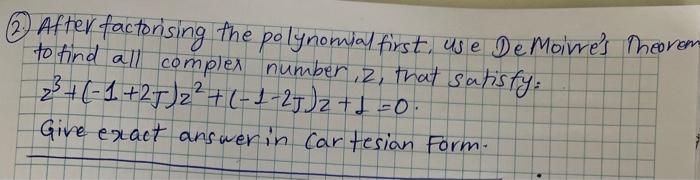 ② After factorising the polynomial first, use DeMoivre's Theorem
to find all complex number, z, that satisfy:
z³+(-1+2J)z²+(-1-2J)z+1=0.
Give exact answer in Cartesian Form.